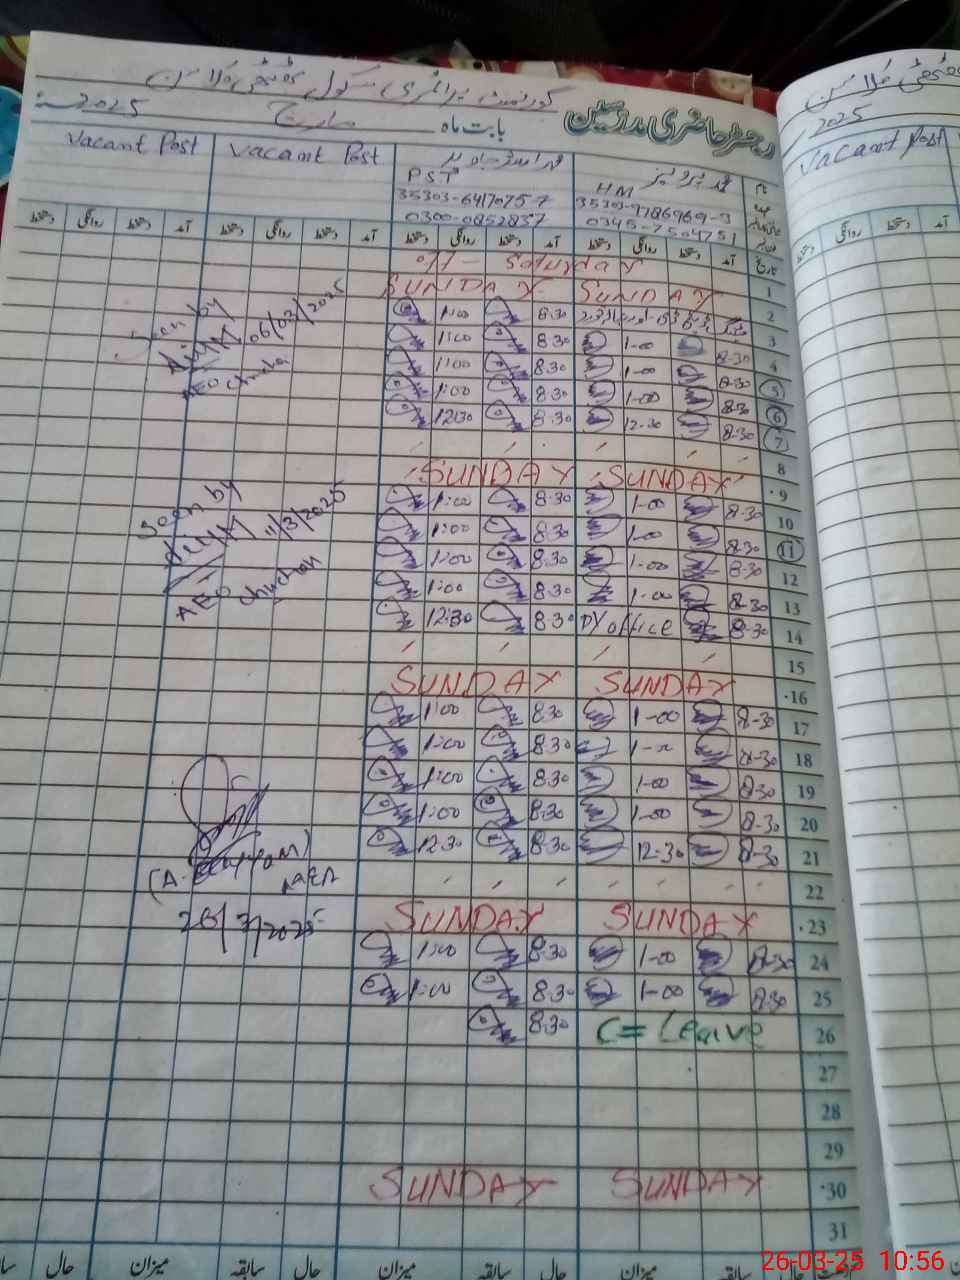 گورنمنٹ پرائمری سکول
رجسٹر حاضری مدرسین بابت ماہ مارچ 2025ء
Vacant Post Vacant Post
PST HM
35303-6417075-7 35303-9786969-3
0300-0852837 0345-7504751
دستخط روانگی دستخط آمد دستخط روانگی دستخط آمد دستخط روانگی دستخط آمد دستخط روانگی دستخط آمد تاریخ
off - Saturday 1
SUNDAY SUNDAY 2
1:00 8.30 3
1:00 8.30 1-00 8-30 4
1:00 8.30 1-00 8-30 5
1:00 8.30 1-00 8-30 6
12:30 8.30 12-30 8-30 7
8
SUNDAY SUNDAY 9
1:00 8.30 1-00 8-30 10
1:00 8.30 1-00 8-30 11
1:00 8.30 1-00 8-30 12
1:00 8.30 1-00 8-30 13
12:30 8.30 DY office 8-30 14
15
SUNDAY SUNDAY 16
1:00 8.30 1-00 8-30 17
1:00 8.30 1-00 8-30 18
1:00 8.30 1-00 8-30 19
1:00 8.30 1-00 8-30 20
12.30 8-30 12-30 8-30 21
22
SUNDAY SUNDAY 23
1:00 8.30 1-00 8-30 24
1:00 8.30 1-00 8-30 25
8.30 C = Leave 26
27
28
29
SUNDAY SUNDAY 30
31
Seen by
06/03/2025
AEO
Seen by
11/3/2025
AEO
26/3/2025
حال میزان سابقہ حال میزان سابقہ حال میزان
2025
Vacant Post
دستخط روانگی دستخط
26-03-25 10:56